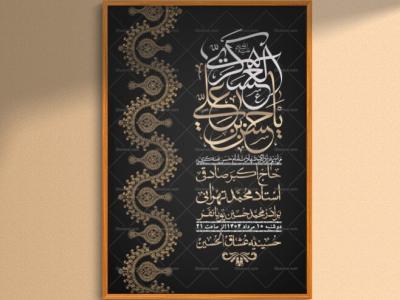 یا حسن بن علی
العسکری
حاج اکبر صادقی
استاد محمد تهرانی
برادر محمد حسین پویانفر
دوشنبه ۱۰ مرداد ۱۴۰۴ از ساعت ۲۱
حسینیه عشاق الحسین